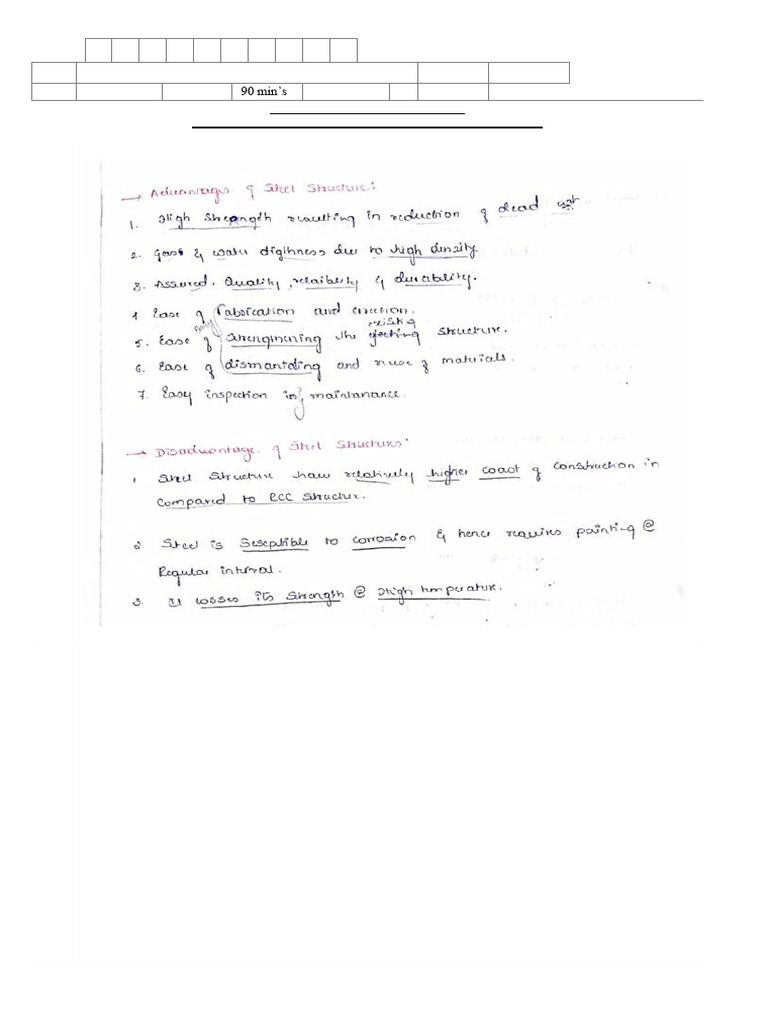 90 min's
→ Advantages of Steel Structure:
1. High Strength resulting in reduction of dead wt.
2. Gas & water digthness due to high density.
3. Assured, Quality, relaibility & durability.
4 Ease of fabrication and erection.
existing
5. Ease of Strenginening the structure.
6. Ease of dismantaling and reuse of materials.
7. Easy inspection in maintanance.
→ Disadvantage of Steel Structures:
1 Steel Structure have relatively higher coast of construction in
compared to RCC Structure.
2 Steel is Seseptible to corrosion & hence requires painting @
Regular interval.
3. It losses its Strength @ High temperature.